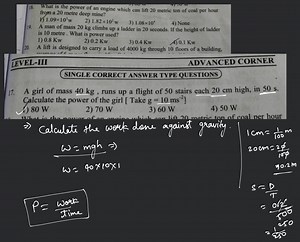 What is the power of an engine which can lift 20 metric ton of coal per hour
from a 20 metre deep mine?
1) 1.09×10³w 2) 1.82×10³w 3) 1.08×10³ 4) None
A man of mass 20 kg climbs up a ladder in 20 seconds. If the height of ladder
is 10 metre. What is power used?
1) 0.8 Kw 2) 0.2 Kw 3) 0.4 Kw 4) 0.1 Kw
A lift is designed to carry a load of 4000 kg through 10 floors of a building,
LEVEL-III ADVANCED CORNER
SINGLE CORRECT ANSWER TYPE QUESTIONS
17. A girl of mass 40 kg, runs up a flight of 50 stairs each 20 cm high, in 50 s.
Calculate the power of the girl [ Take g = 10 ms⁻²]
1) 80 W 2) 70 W 3) 60 W 4) 50 W
⇒ Calculate the work done against gravity.
W = mgh ⇒
W = 40×10×1
P = Work
Time
1cm = 1/100 m
S = D
T